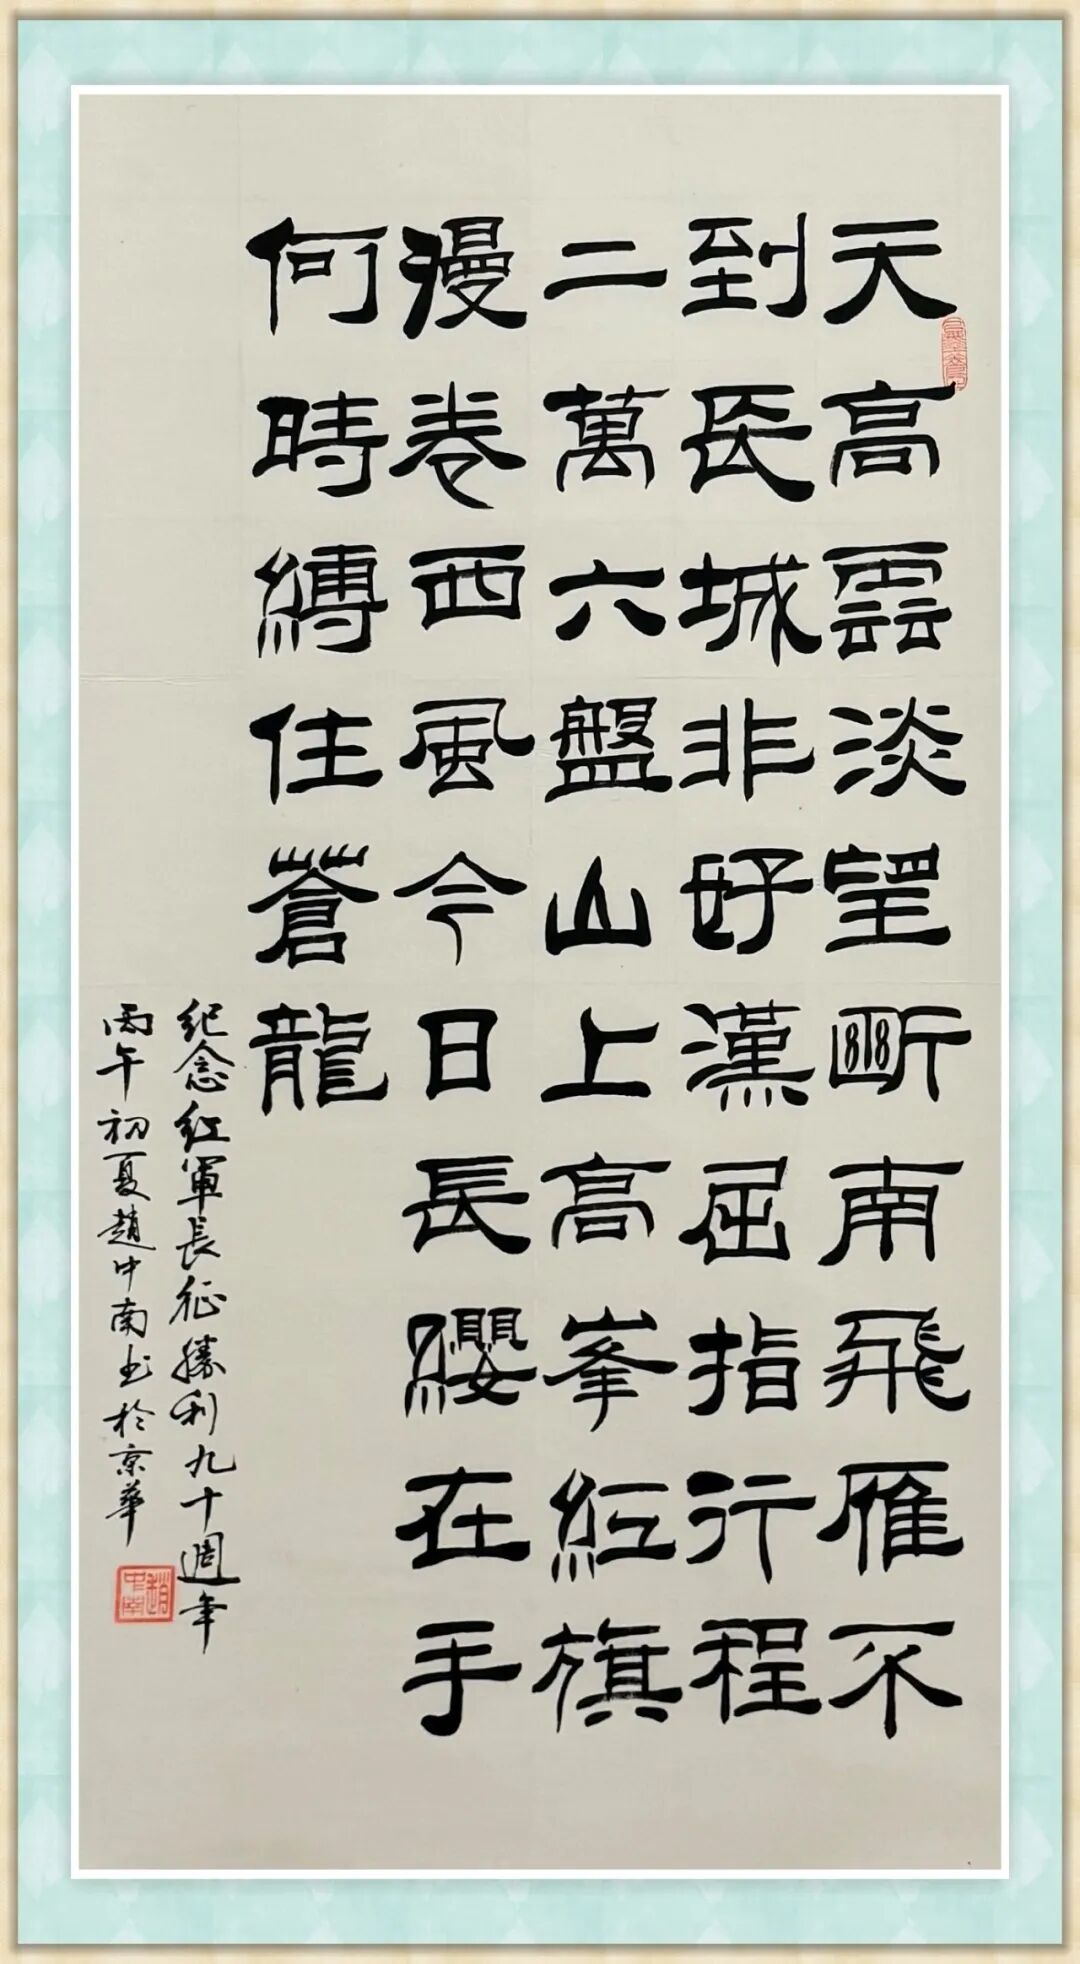 天高雲淡望斷南飛雁不
到長城非好漢屈指行程
二萬六盤山上高峯紅旗
漫卷西風今日長纓在手
何時縛住蒼龍
紀念紅軍長征勝利九十週年
丙午初夏趙中南书於京華
趙中南